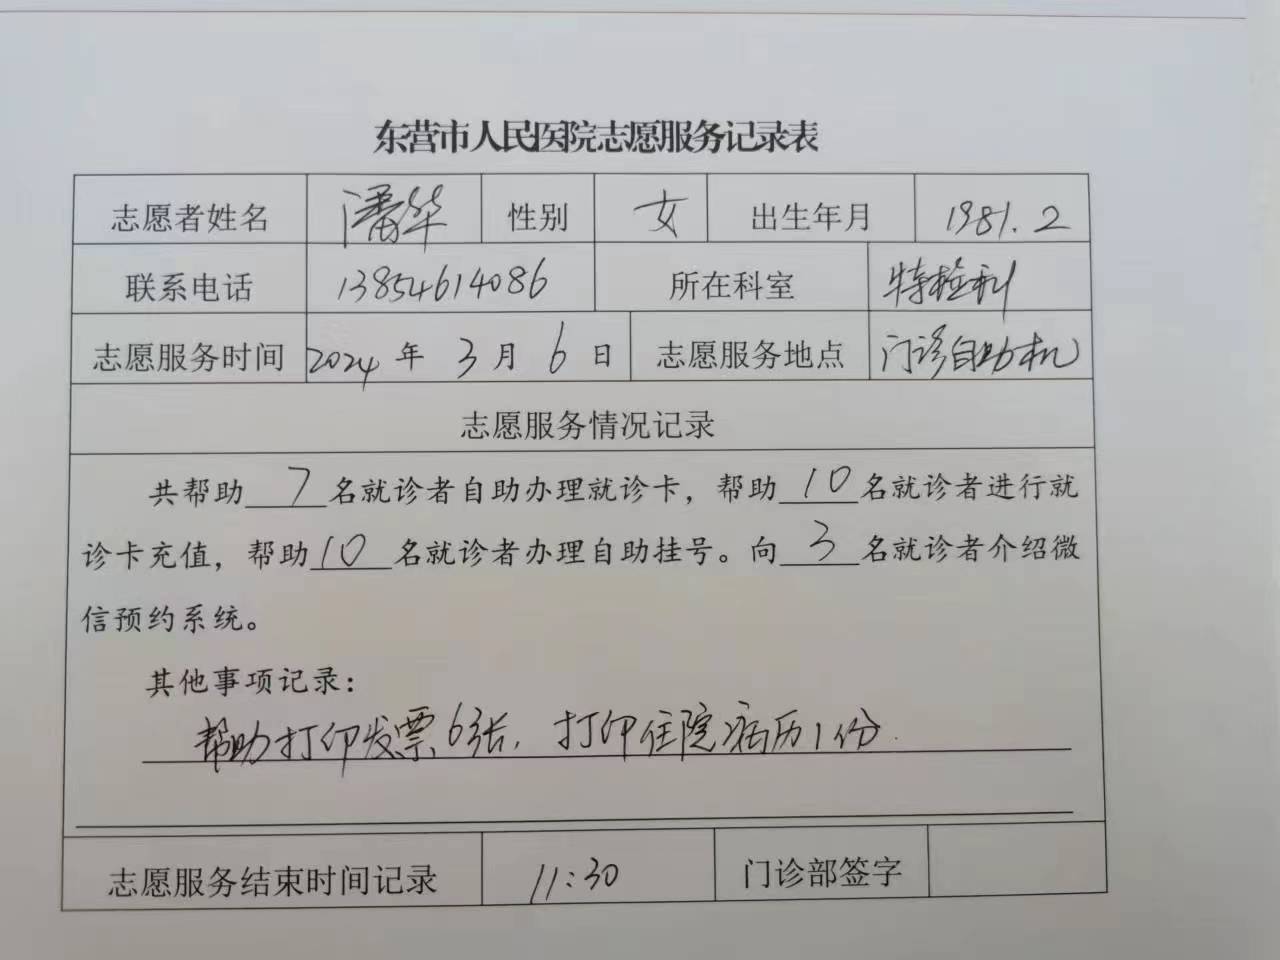 东营市人民医院志愿服务记录表
志愿者姓名 潘华 性别 女 出生年月 1981.2
联系电话 13854614086 所在科室 特检科
志愿服务时间 2024 年 3 月 6 日 志愿服务地点 门诊自助机
志愿服务情况记录
共帮助 7 名就诊者自助办理就诊卡，帮助 10 名就诊者进行就
诊卡充值，帮助 10 名就诊者办理自助挂号。向 3 名就诊者介绍微
信预约系统。
其他事项记录：
帮助打印发票6张，打印住院病历1份.
志愿服务结束时间记录 11:30 门诊部签字